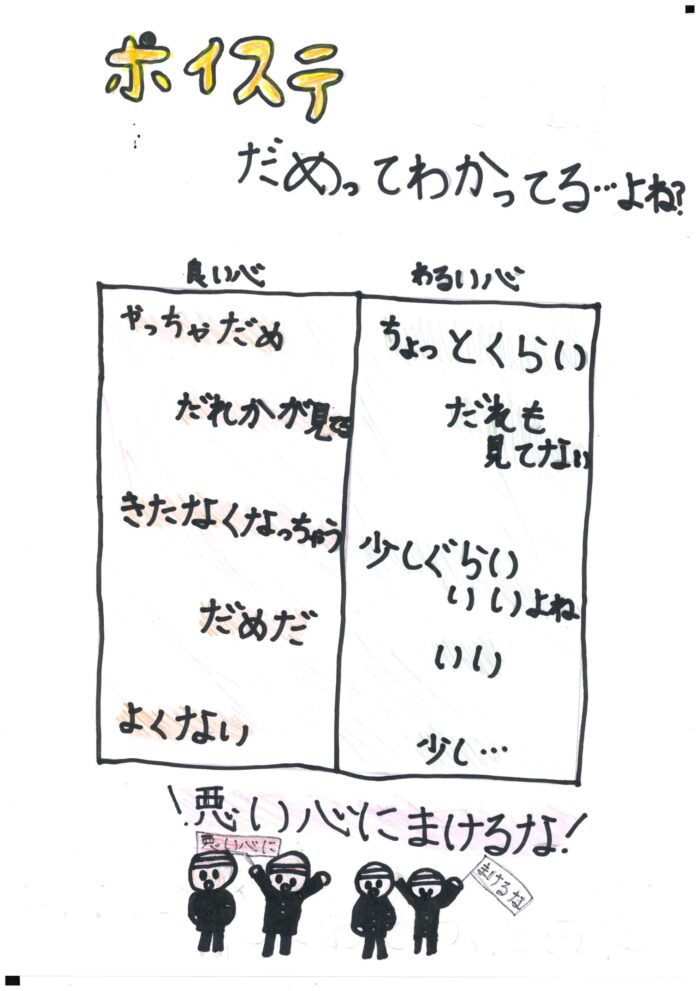 ポイステ
だめってわかってる…よね?
良い心
やっちゃだめ
だれかが見てる
きたなくなっちゃう
だめだ
よくない
わるい心
ちょっとくらい
だれも
見てない
少しぐらい
いいよね
いい
少し…
悪い心にまけるな!
悪い心に
まけるな